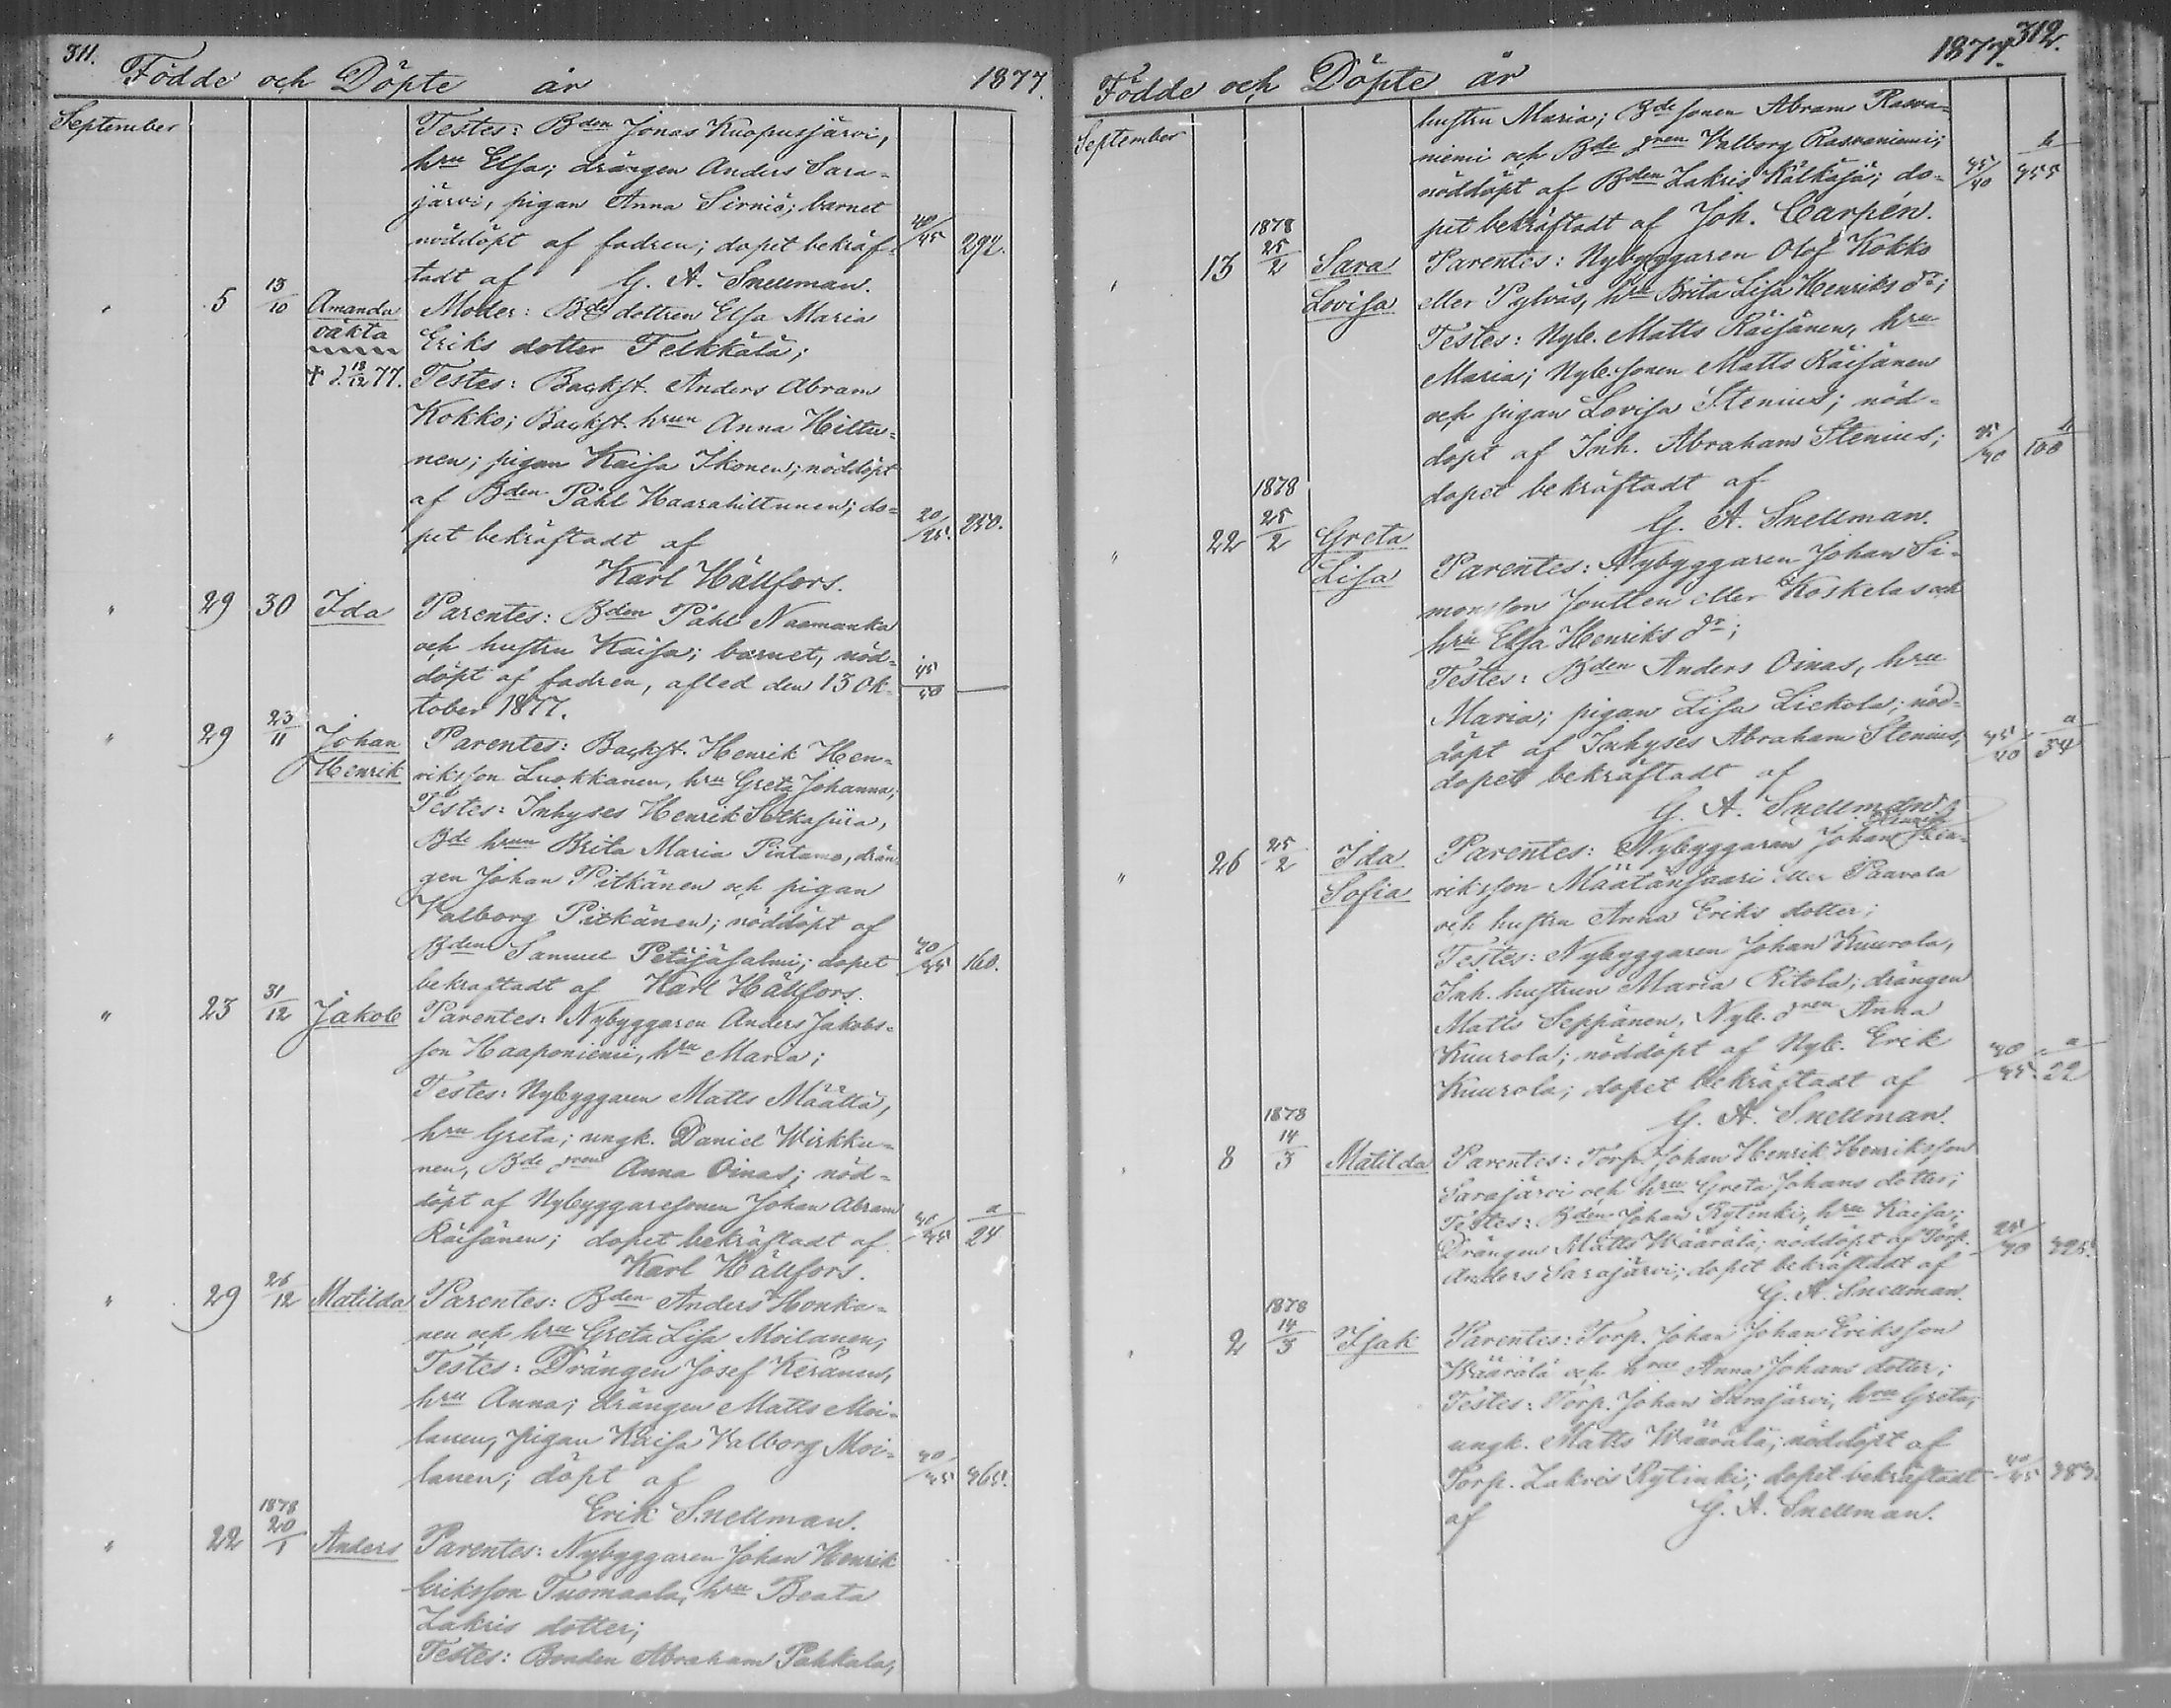 311.
Födde och Döpte år 1877.
September
Testes: Bden Jonas Kuopusjärvi,
hru Elsa; drängen Anders Sara-
järvi, pigan Anna Sirniö; barnet
nöddöpt af fadren; dopet bekräf- 40/45 292.
tadt af G. A. Snellman.
" 5 13/10 Amanda Moder: Bde dottren Elsa Maria
oäkta Eriks dotter Felkkälä;
† d. 18/12 77. Testes: Backst. Anders Abram
Kokko; Backst. hrun Anna Hiltu-
nen; pigan Kaisa Ikonen; nöddöpt
af Bden Påhl Haarahiltunen; do-
pet bekräftadt af 20/25. 250.
Karl Hällfors.
" 29 30 Ida Parentes: Bden Påhl Naamanka
och hustru Kaisa; barnet, nöd-
döpt af fadren, afled den 13 Ok- 45/50 —
tober 1877.
" 29 23/11 Johan Parentes: Backst. Henrik Hen-
Henrik riksson Luokkanen, hru Greta Johanna;
Testes: Inhyses Henrik Sotkajua,
Bde hrun Brita Maria Pintamo, drän-
gen Johan Pitkänen och pigan
Valborg Pitkänen; nöddöpt af
Bden Samuel Petäjäsalmi; dopet 40/45 160.
bekräftadt af Karl Hällfors.
" 23 31/12 Jakob Parentes: Nybyggaren Anders Jakobs-
son Haaponiemi, hru Maria;
Testes: Nybyggaren Matts Määttä,
hru Greta; ungk. Daniel Wirkku-
nen, Bde dren Anna Oinas; nöd-
döpt af Nybyggaresonen Johan Abram
Räisänen; dopet bekräftadt af 40/45 a/24
Karl Hällfors.
" 29 26/12 Matilda Parentes: Bden Anders Honka-
nen och hru Greta Lisa Moilanen;
Testes: Drängen Josef Keränen,
hru Anna; drängen Matts Moi-
lanen, pigan Kaisa Valborg Moi-
lanen; döpt af 40/45 465.
Erik Snellman.
" 22 1878 20/1 Anders Parentes: Nybyggaren Johan Henrik
Eriksson Tuomaala, hru Beata
Zakris dotter;
Testes: Bonden Abraham Pahkala,
312.
Födde och Döpte år 1877.
September
hustru Maria; Bde sonen Abram Rasva-
niemi och Bde dren Valborg Rasvaniemi;
nöddöpt af Bden Zakris Kälkäjä; do- 35/40 b/455
pet bekräftadt af Joh. Carpén.
" 13 1878 25/2 Sara Parentes: Nybyggaren Olof Kokko
Lovisa eller Pylväs, hru Brita Lisa Henriks dr;
Testes: Nyb. Matts Räisänen, hru
Maria; Nyb. sonen Matts Räisänen
och pigan Lovisa Stenius; nöd-
döpt af Inh. Abraham Stenius; 35/40 b/100
dopet bekräftadt af
G. A. Snellman.
" 22 1878 25/2 Greta Parentes: Nybyggaren Johan Si-
Lisa monsson Joutten eller Koskelas och
hru Elsa Henriks dr;
Testes: Bden Anders Oinas, hru
Maria; pigan Lisa Liekola; nöd-
döpt af Inhyses Abraham Stenius, 35/40 a/34
dopet bekräftadt af
G. A. Snellman.
" 26 25/2 Ida Parentes: Nybyggaren Johan Hen-
Sofia riksson Määtänsaari eller Paavola
och hustru Anna Eriks dotter;
Testes: Nybyggaren Johan Kuurola,
Inh. hustrun Maria Ritola; drängen
Matts Seppänen, Nyb. dren Anna
Kuurola; nöddöpt af Nyb. Erik
Kuurola; dopet bekräftadt af 40/45. a/22
G. A. Snellman.
" 8 1878 14/3 Matilda Parentes: Torp. Johan Henrik Henriksson
Sarajärvi och hru Greta Johans dotter;
Testes: Bden Johan Rytinki, hru Kaisa;
Drängen Matts Määrälä; nöddöpt af Torp. 35/40 325.
Anders Sarajärvi; dopet bekräftadt af
G. A. Snellman.
" 2 1878 14/3 Isak Parentes: Torp. Johan Johan Eriksson
Väärälä och hru Anna Johans dotter;
Testes: Torp. Johan Sarajärvi, hru Greta;
ungk. Matts Väärälä; nöddöpt af
Torp. Zakris Rytinki; dopet bekräftadt 40/45 383.
af G. A. Snellman.